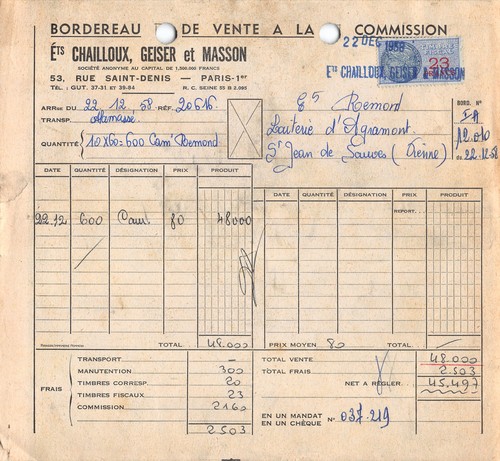 BORDEREAU DE VENTE A LA COMMISSION
Éts CHAILLOUX, GEISER et MASSON
SOCIÉTÉ ANONYME AU CAPITAL DE 1.500.000 FRANCS
53, RUE SAINT-DENIS — PARIS-1er
TÉL. : GUT. 37-31 ET 39-84 R. C. SEINE 55 B 2.095
22 DEC 1958
TIMBRE FISCAL
23
Éts CHAILLOUX, GEISER & MASSON
ARR. DU 22.12.58 RÉF. 20616
TRANSP.
QUANTITÉ 10X60=600 Cam' Remond
Ets Remond
Laiterie d'Agramont
St Jean de Sauves (Vienne)
BORD. N°
12.010
DU 22.12.58
DATE QUANTITÉ DÉSIGNATION PRIX PRODUIT
22.12 600 Cam'. 80 48000
TOTAL 48.000
DATE QUANTITÉ DÉSIGNATION PRIX PRODUIT
REPORT....
PRIX MOYEN 80 TOTAL —
FRAIS
TRANSPORT —
MANUTENTION 300
TIMBRES CORRESP. 20
TIMBRES FISCAUX 23
COMMISSION 2160
2503
TOTAL VENTE 48.000
TOTAL FRAIS 2.503
NET A RÉGLER... 45.497
EN UN MANDAT
EN UN CHÈQUE N° 037.219